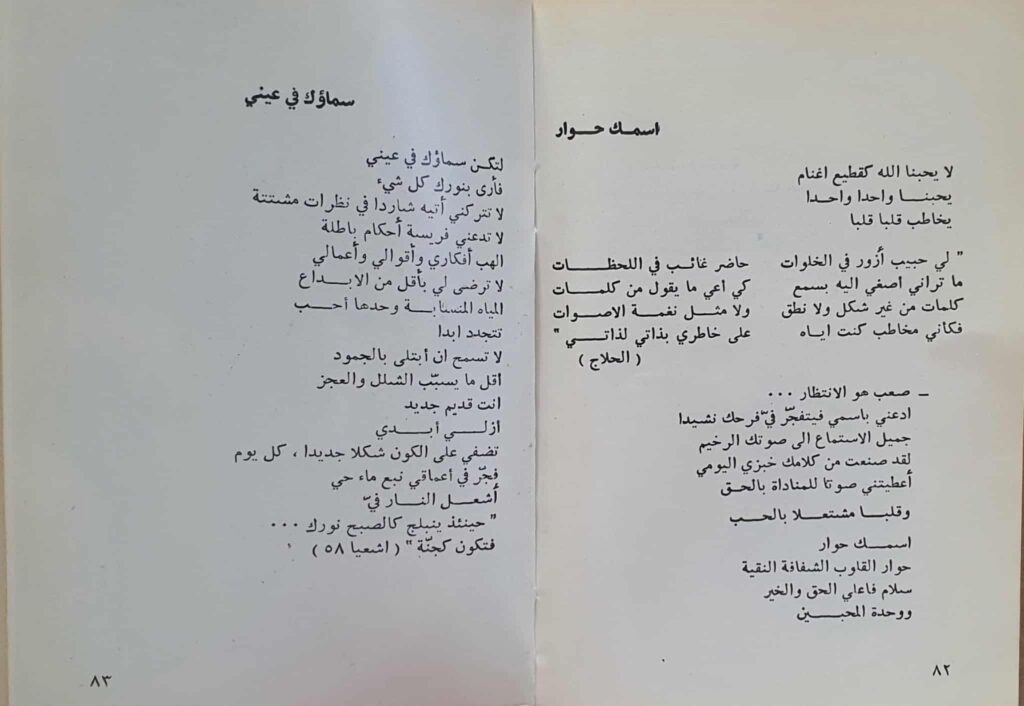 اسمـك حـوار
لا يحبنا الله كقطيع اغنام
يحبنـــا واحدا واحـدا
يخاطب قلبا قلبا
" لي حبيب أزور في الخلوات حاضر غائـب في اللحظـــات
ما تراني اصغي اليه بسمع كي اعي ما يقول من كلمـات
كلمات من غير شكل ولا نطق ولا مثـل نغمـة الاصـوات
فكاني مخاطب كنت ايـاه على خاطري بذاتي لذاتـــي "
( الحلاج )
ــ صعب هو الانتظار ...
ادعني باسمي فيتفجّر فيّ فرحك نشيدا
جميل الاستماع الى صوتك الرخيم
لقد صنعت من كلامك خبزي اليومي
أعطيتني صوتا للمناداة بالحق
وقلبـا مشتعـلا بالحـب
اسمـــك حوار
حوار القاوب الشفافة النقية
سلام فاعلي الحق والخير
ووحدة المحبـــين
٨٢
سماؤك في عيني
لتكـن سماؤك في عيني
فأرى بنورك كل شيء
لا تتركني أتيه شاردا في نظرات مشتتة
لا تدعني فريسة أحكام باطلة
الهب أفكاري وأقوالي وأعمالي
لا ترضى لي بأقل من الابــداع
المياه المنسابـة وحدها أحـب
تتجدد ابدا
لا تسمح ان أبتلى بالجمود
أقل ما يسبّب الشلل والعجز
انت قديم جديد
ازلـــي أبــدي
تضفي على الكون شكلا جديدا ، كل يوم
فجّر في أعماقي نبع ماء حي
أشعـل النـار فيّ
" حينئذ ينبلج كالصبح نورك ...
فتكون كجنّة " ( اشعيا ٥٨ )
٨٣